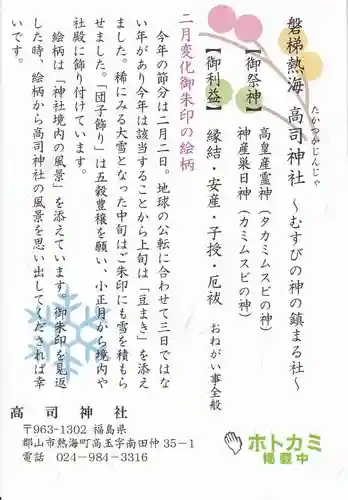 磐梯熱海 高司神社 ～むすびの神の鎮まる社～
たかつかじんじゃ
【御祭神】 高皇産霊神（タカミムスビの神）
神産巣日神（カミムスビの神）
【御利益】 縁結・安産・子授・厄祓 おねがい事全般
二月変化御朱印の絵柄
今年の節分は二月二日。地球の公転に合わせて三日ではな
い年があり今年は該当することから上旬は「豆まき」を添え
ました。稀にみる大雪となった中旬はご朱印にも雪を積もら
せました。「団子飾り」は五穀豊穣を願い、小正月から境内や
社殿に飾り付けています。
絵柄は「神社境内の風景」を添えています。御朱印を見返
した時、絵柄から高司神社の風景を思い出してくだされば幸
いです。
高司神社
〒963-1302 福島県
郡山市熱海町高玉字南田仲35－1
電話 024－984－3316
ホトカミ
掲載中